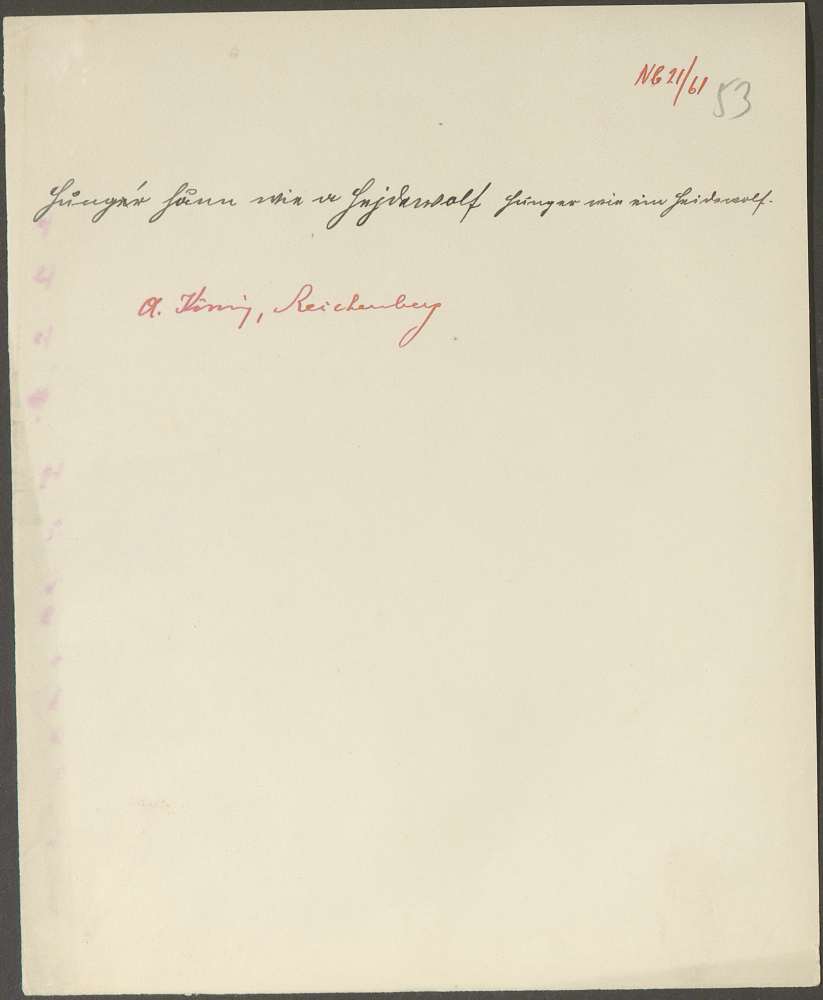 NB 21/61 53
Hunger hånn wie a Hejdewolf Hunger wie ein Heidewolf.
A. König, Reichenberg